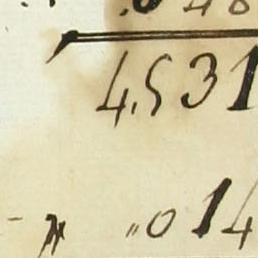 4.531
" "014